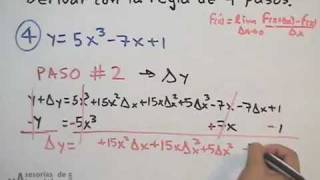 Derivar con la regla de 4 pasos.
F'(x) = lim F(x+Δx) - F(x)
Δx→0 Δx
④ y = 5x³ - 7x + 1
PASO #2 → Δy
y + Δy = 5x³ + 15x²Δx + 15xΔx² + 5Δx³ - 7x - 7Δx + 1
-y = -5x³ +7x -1
Δy = +15x²Δx + 15xΔx² + 5Δx³ -
Asesorías de